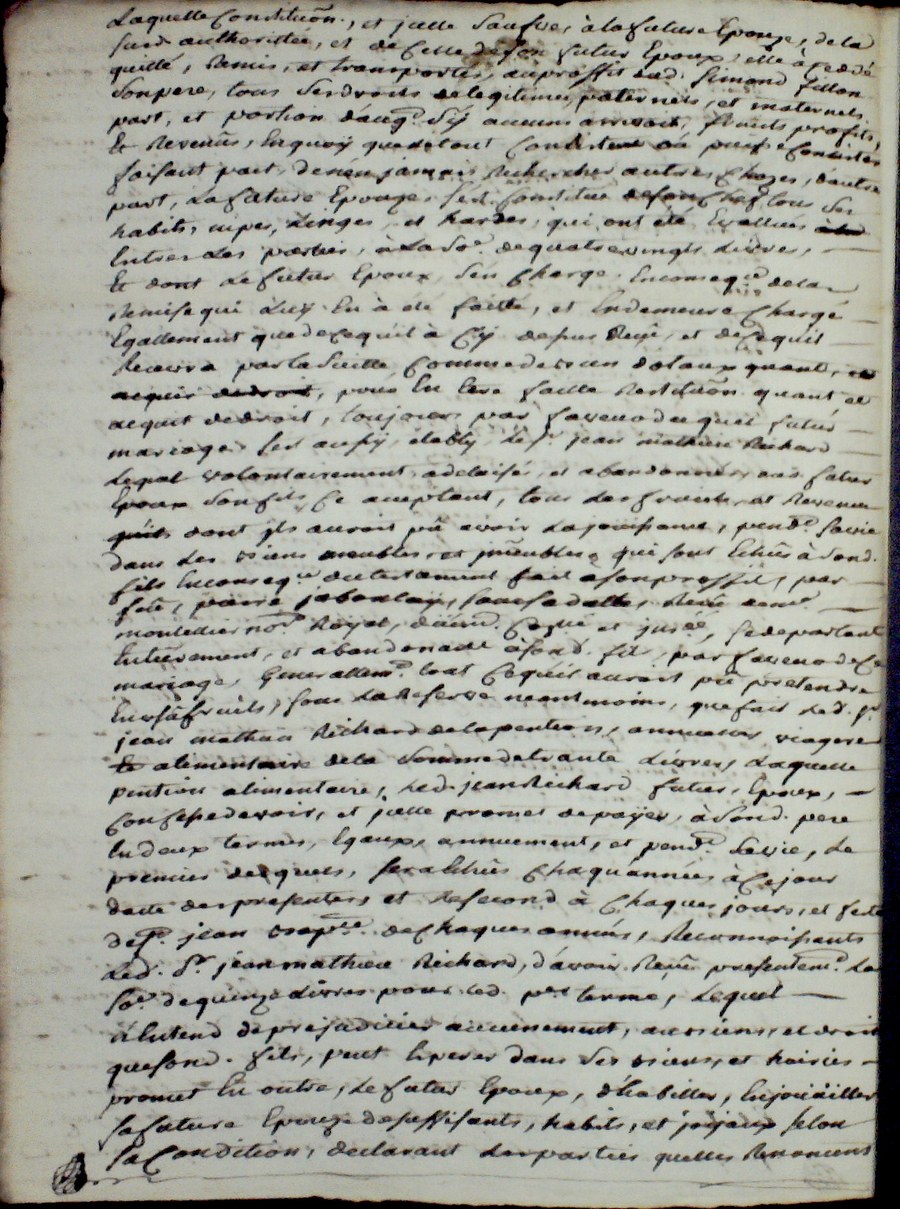 Laquelle Constitu͠on., et jcelle Saufve, à la future Epouze, de la
susd. authorisée, et de Celle de son futur Epoux, elle à cedé
quitté, Remis, et transportés, au proffit dud. Simond fillon
Son pere, tous Ses droits de legitimes paternels, et maternels
part, et portion d'aug. S'ÿ aucuns arrivoit, fruits profits,
Et Revenûs, En quoÿ que de tout Consistent ou puisse Consister
faisant pact, de n'en jamais Rechercher autres Chozes, d'autre
part, La future Epouze, s'est Constitué de Son Chef tous Ses
habits, nipes, Linges, et hardes, qui ont été Evallués
Entre Les parties, à La So.e de quatre vingts Livres,
Et dont Le futur Epoux, S'en Charge. En conseq.ce de la
Remise qui Luÿ En à été faitte, et En demeure Chargé
Egallement que de Ce qu'il à Cÿ depus Reçû, et de Ce qu'il
Recevra par la Suitte, Comme de tous dotaux quant, et
acquis de droit, pour En Etre faitte Restitu͠on quant et
acquit de droit, toujours par faveur du quel futur
mariage. s'est aussÿ, etablÿ Le s.r jean mathieu Richard
Lequel volontairement, a delaisé, et abandonné, aud. futur
Epoux Son fils, Ce aceptant, tous Les fruits, et Revenus
quils dont jls auroit pû avoir La jouissance, pend.t Sa vie
dans Les Biens meubles, et jmeubles, qui sont Echûs à Sond.
fils En conseq.ce du testament fait a Son proffit, par
feû, pierre jaboulaÿ, Reçû dem.e
montellier no.re Roÿal, Se departant
Entierement, et abandonnat à Sond. fils, par faveur de Ce
mariage, Generallem.t tout Ce qu'il auroit pû pretendre
En usufruits, sous La Reserve neant moins, que fait Led. s.r
jean mathieu Richard de la pention, annuelles viagere
Et alimentaire de la Somme de trante Livres, Laquelle
pention alimentaire, Led. jean Richard futur, Epoux,
Confesse devoir, et jcelle promet de paÿer, à Sond. pere
En deux termes, Egaux, annuement, et pend.t Sa vie, Le
premier desquels, sera Echûs Chaqu'années à Ce jour
datte des presentes et Le Second à Chaques jours, et feste
de s.t jean Bap.te de Chaques années, Reconnoissants
Led. S.r jean mathieu Richard, d'avoir Reçû presentem.t La
So.e de quinze Livres pour Led. p.er terme, Lequel
n'Entend de prejudicier aucunement, aux siens, et droits
que Sond. fils, peut Esperer dans Ses Biens, et hoiries
promet En outre, Le futur Epoux, d'habiller, Enjouiäller
Sa future Epouze de suffisants, habits, et joÿaux selon
Sa Condition, declarant Les parties quelles Renoncent